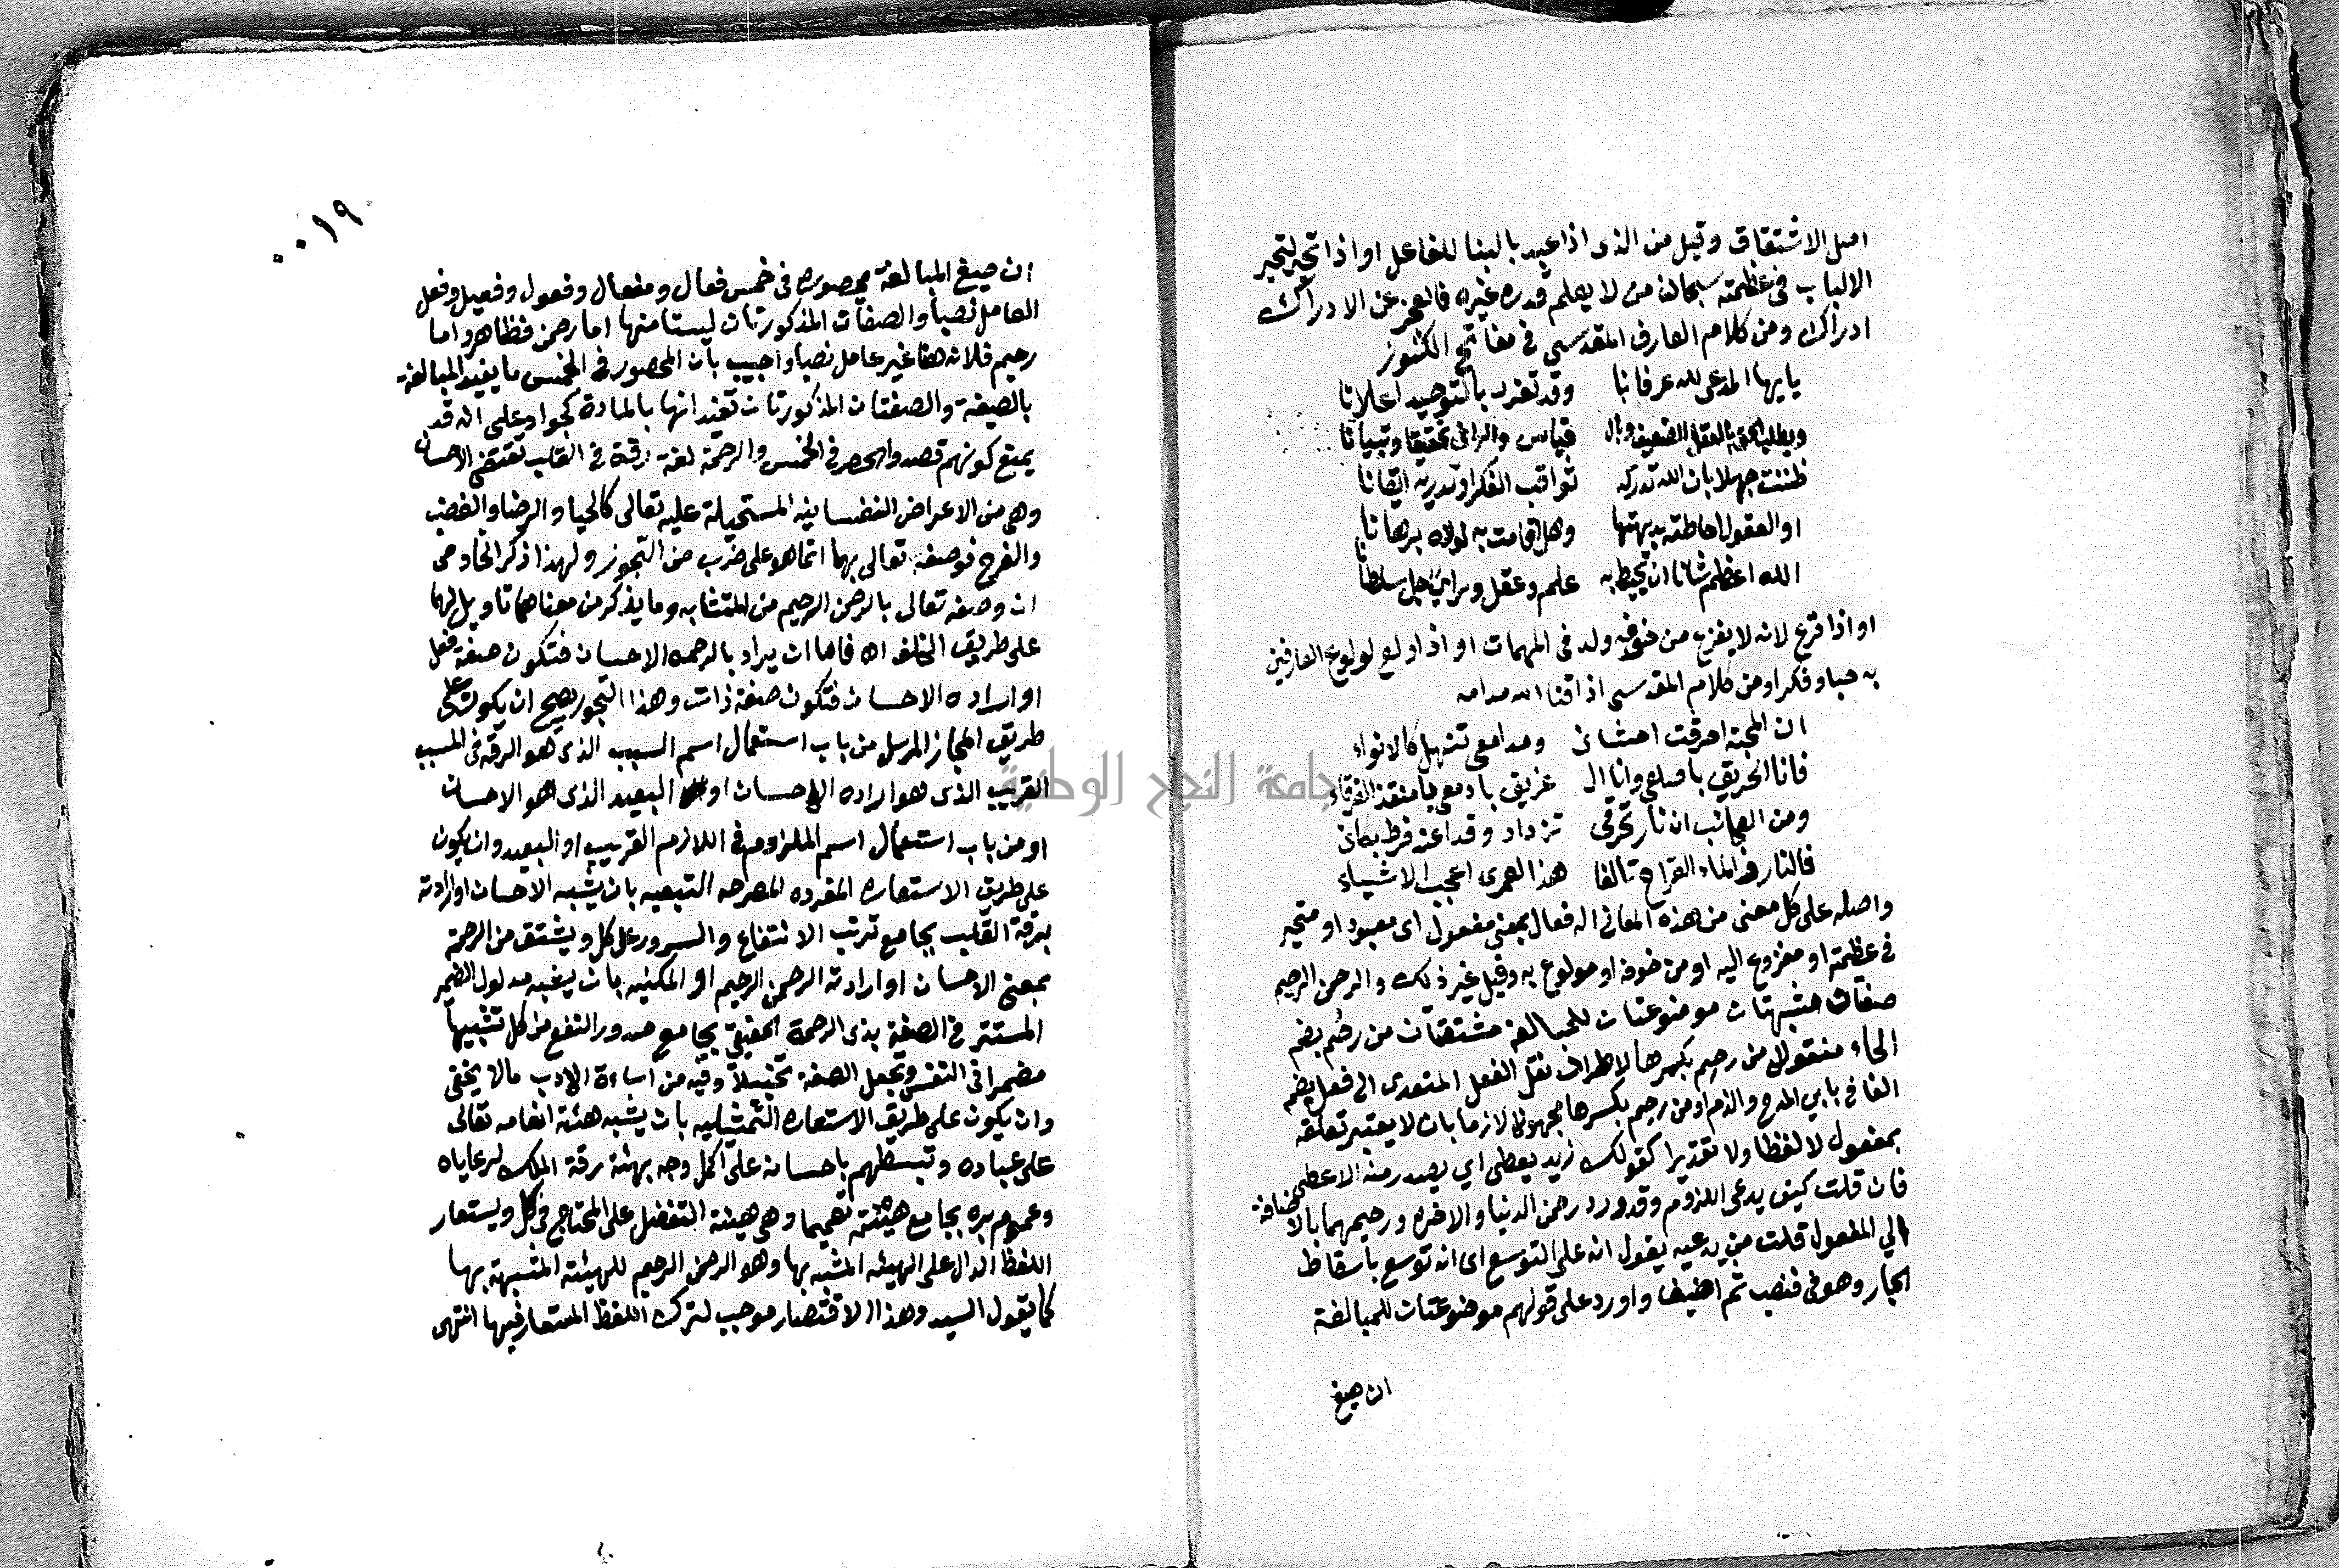 اصل الاشتقاق وقيل من الذى اذا عبد بالبنا للفاعل او اذا تحير لتحير
الالباب في عظمته سبحان من لا يعلم قدره غيره فالعجز عن الادراك
ادراك ومن كلام العارف المقدسي في مفاتح الكنوز
يايها المدعى لله عرفانا وقد تغرب بالتوحيد اعلانا
ويطلب الحق بالعقل الضعيف وال قياس والراى تحقيقا وتبيانا
ظننت جهلا بان الله تدركه ثواقب الفكر او تدريه اتقانا
او العقول احاطته بديهتها وهل اقامت به لولاه برهانا
الله اعظم شانا ان تحيط به علم وعقل وراي جل سلطانا
او اذا فزع لانه لا يفزع من خوفه ولد فى المهمات او اذا ولع لولوع العارفين
به حبا وفكرا ومن كلام المقدسي اذاقنا الله مدامه
ان المحبة احرقت احشائ ومدامعى تنهل كالانواء
فانا الحريق باضلعي وانا ال غريق بادمعى يا منقذ الغرقاء
ومن العجائب ان نار تحرقى تزداد وقدا عند فرط بكائ
فالنار فى الماء القراح تالفا هذا لعمرى اعجب الاشياء
واصله على كل معنى من هذه المعانى اله فعال بمعنى مفعول اى معبود او متحير
فى عظمته او مفزوع اليه او من خوفه او مولوع به وقيل غير ذلك والرحمن الرحيم
صفتان مشبهتان موضوعتان للمبالغة مشتقتان من رحُم بضم
الحاء منقول من رحِم بكسرها لاطراف نقل الفعل المتعدى الى فعل بضم
الفا فى بابي المدح والذم او من رحيم بكسرها مجهول لازما بان لا يعتبر تعلقه
بمفعول لا لفظا ولا تقديرا كقولك زيد يعطى اي يصدر منه الاعطى
فان قلت كيف يدعى اللزوم وقد ورد رحمن الدنيا والاخره ورحيمهما بالاضافة
الي المفعول قلت من يدعيه يقول انه على التوسع اى انه توسع باسقاط
الجار وهو فى فنصب ثم اضيفا واورد على قولهم موضوعتان للمبالغة
ان صيغ
٠٠١٩
ان صيغ المبالغة محصوره فى خمس فعال ومفعال وفعول وفعيل وفعل
العامل نصبا والصفتان المذكورتان ليستا منها اما رحمن فظاهر واما
رحيم فلانه هنا غير عامل نصبا واجيب بان المحصور فى الخمس ما يفيد المبالغة
بالصيغة والصفتان المذكورتان تفيد انها بالمادة كجواد على انه قد
يمنع كونهم قصدوا الحصر فى الخمس والرحمة لغة رقة فى القلب تقتضى الاحسان
وهى من الاعراض النفسانيه المستحيلة عليه تعالى كالحيا والرضا والغضب
والفرح فوصفه تعالى بهما انما هو على ضرب من التجوز ولهذا ذكر الخادمى
ان وصفه تعالى بالرحمن الرحيم من المتشابه وما يذكر من معناهما تاويل لهما
على طريق الخلف اه فاما ان يراد بالرحمه الاحسان فتكون صفة فعل
او اراده الاحسان فتكون صفة ذات وهذا التجور يصح ان يكون على
طريق المجاز المرسل من باب استعمال اسم السبب الذى هو الرقة فى المسبب
القريب الذى هو اراده الاحسان او البعيد الذى هو الاحسان
او من باب استعمال اسم الملزوم فى اللازم القريب او البعيد وان يكون
على طريق الاستعاره المفرده المصرحه التبعيه بان يشبه الاحسان او ارادته
برقة القلب بجامع ترتب الانتفاع والسرور على كل ويشتق من الرحمة
بمعنى الاحسان او ارادته الرحمن الرحيم او المكنيه بان يشبه مدلول الضمير
المستتر فى الصفة بذى الرحمة الحقيقى بجامع صدور النفع من كل تشبيها
مضمرا فى النفس وتجعل الصفة تخييلا وفيه من اساءة الادب مالا يخفى
وان يكون على طريق الاستعاره التمثيليه بان يشبه هئة انعامه تعالى
على عباده وتبسطهم باحسانه على اكمل وجه بهئة رقة الملك لرعاياه
وعمهم بره بجامع هيئة تعمهما وهى هيئة التفضل على المحتاج فى كل ويستعار
اللفظ الدال على الهيئه المشبه بها وهو الرحمن الرحيم للهيئة المشبهة بها
كما يقول السيد وهذا الاقتصار موجب لترك اللفظ المستعار فيها انتهى
جامعة النجاح الوطنية